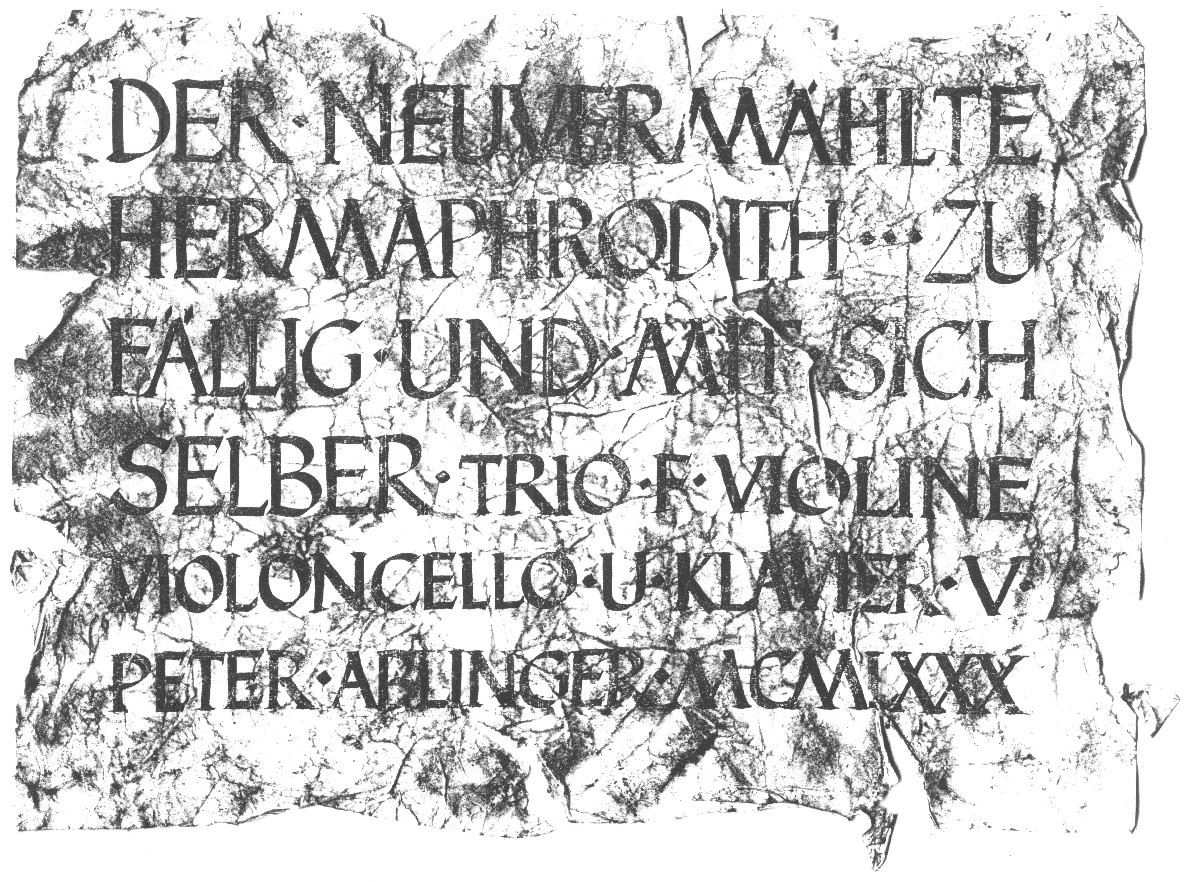 DER · NEUVERMÄHLTE
HERMAPHRODITH ··· ZU
FÄLLIG · UND · MIT SICH
SELBER · TRIO · F · VIOLINE
VIOLONCELLO · U · KLAVIER · V ·
PETER · ABLINGER · MCMLXXX